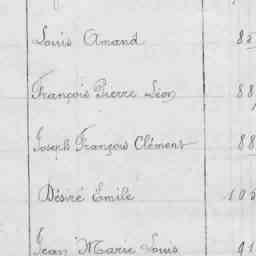 Louis Amand 85
François Pierre Léon 88
Joseph François Clément 88
Désiré Émile 103
Jean Marie Louis 91